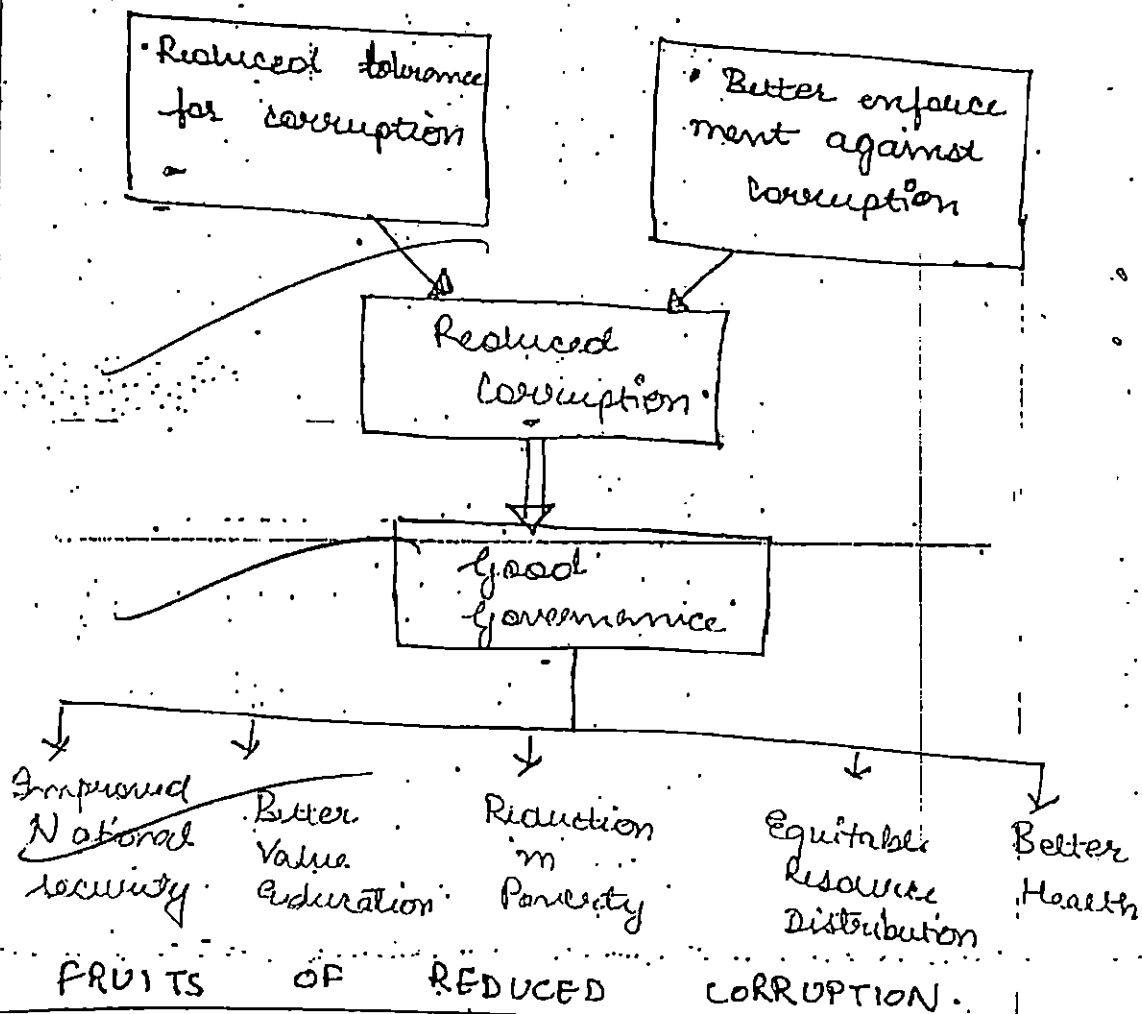 • Reduced tolerance
for corruption
• Better enforce
ment against
corruption
Reduced
Corruption
Good
Governance
Improved
National
security
Better
Value
Education
Reduction
in
Poverty
Equitable
Resource
Distribution
Better
Health
FRUITS OF REDUCED CORRUPTION.